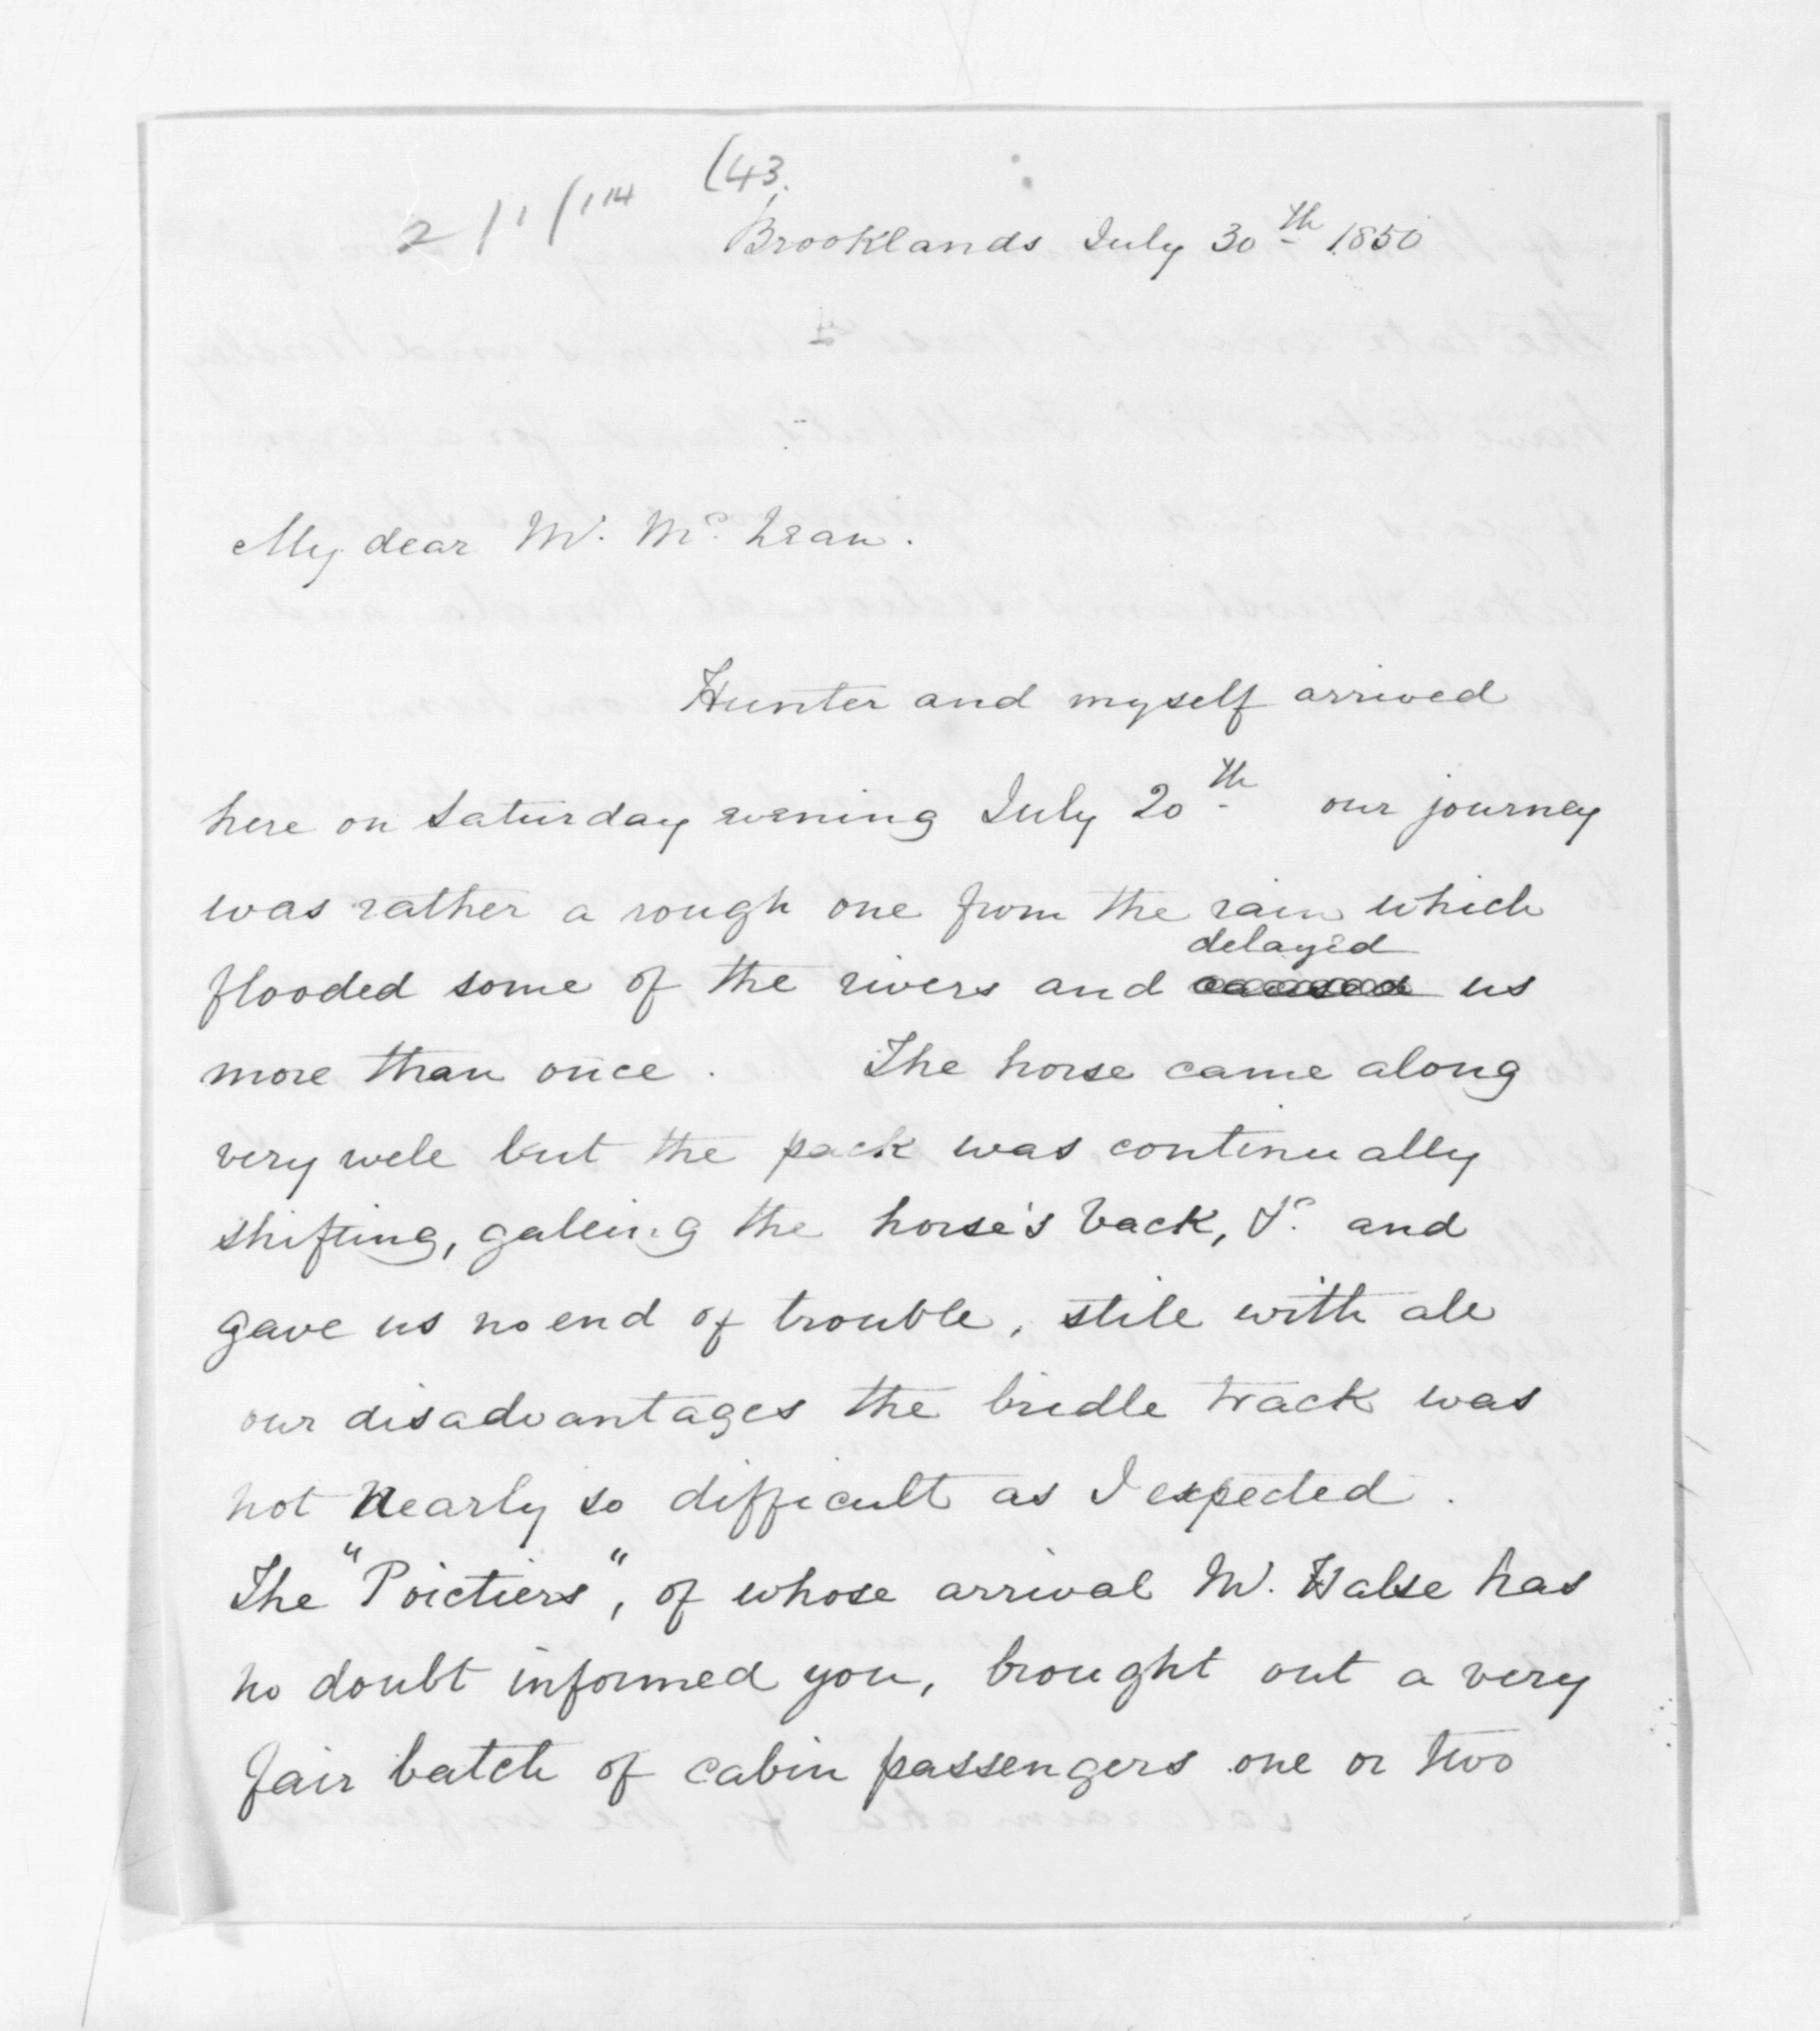 (43.
Brooklands July 30th 1850
My dear Mr. McLean.
Hunter and myself arrived
here on Saturday evening July 20th our journey
was rather a rough one from the rain which
delayed
flooded some of the rivers and caused us
more than once. The horse came along
very well but the pack was continually
shifting, galling the horse's back, &c. and
gave us no end of trouble, still with all
our disadvantages the bridle track was
not nearly so difficult as I expected.
The "Poictiers", of whose arrival Mr. Halse has
no doubt informed you, brought out a very
fair batch of cabin passengers one or two